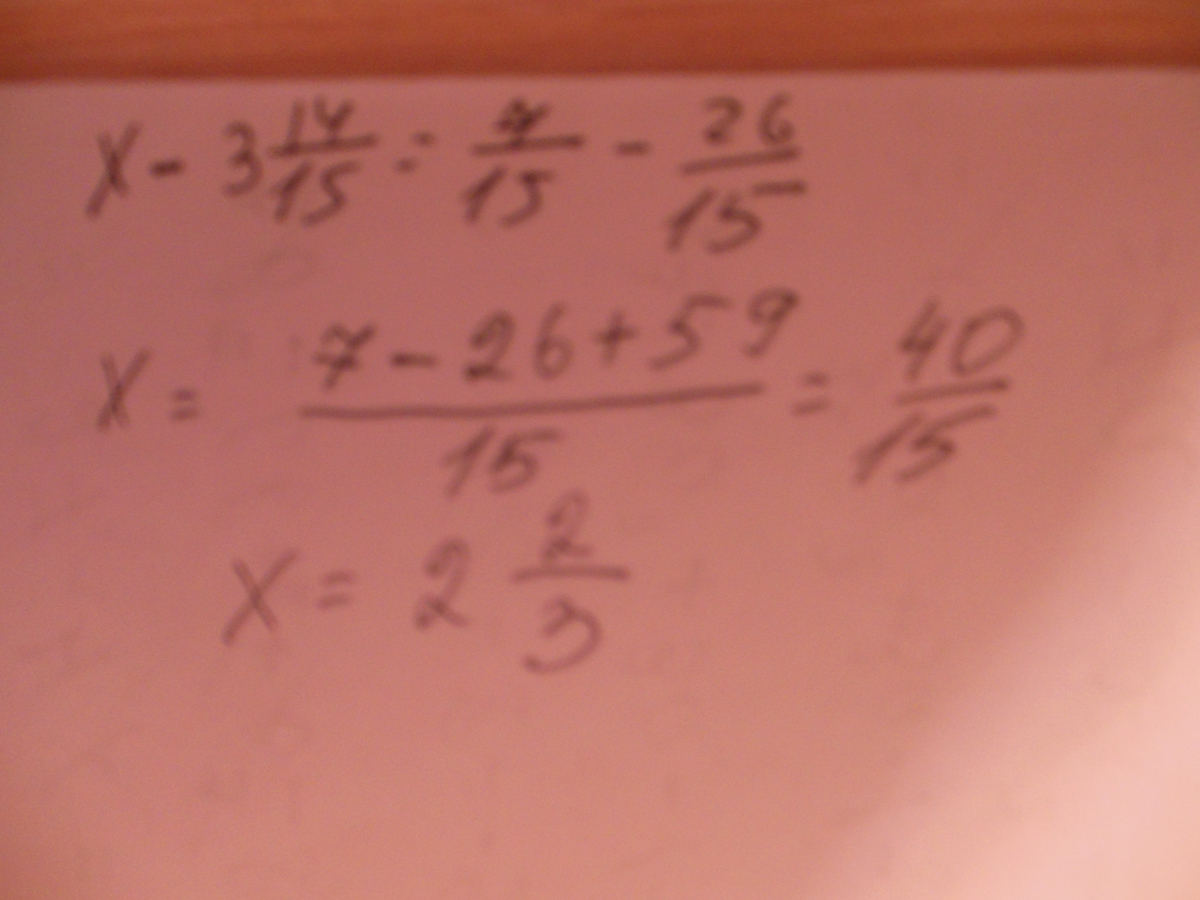 x - 3 14/15 = 7/15 - 26/15
x = (7 - 26 + 59)/15 = 40/15
x = 2 2/3